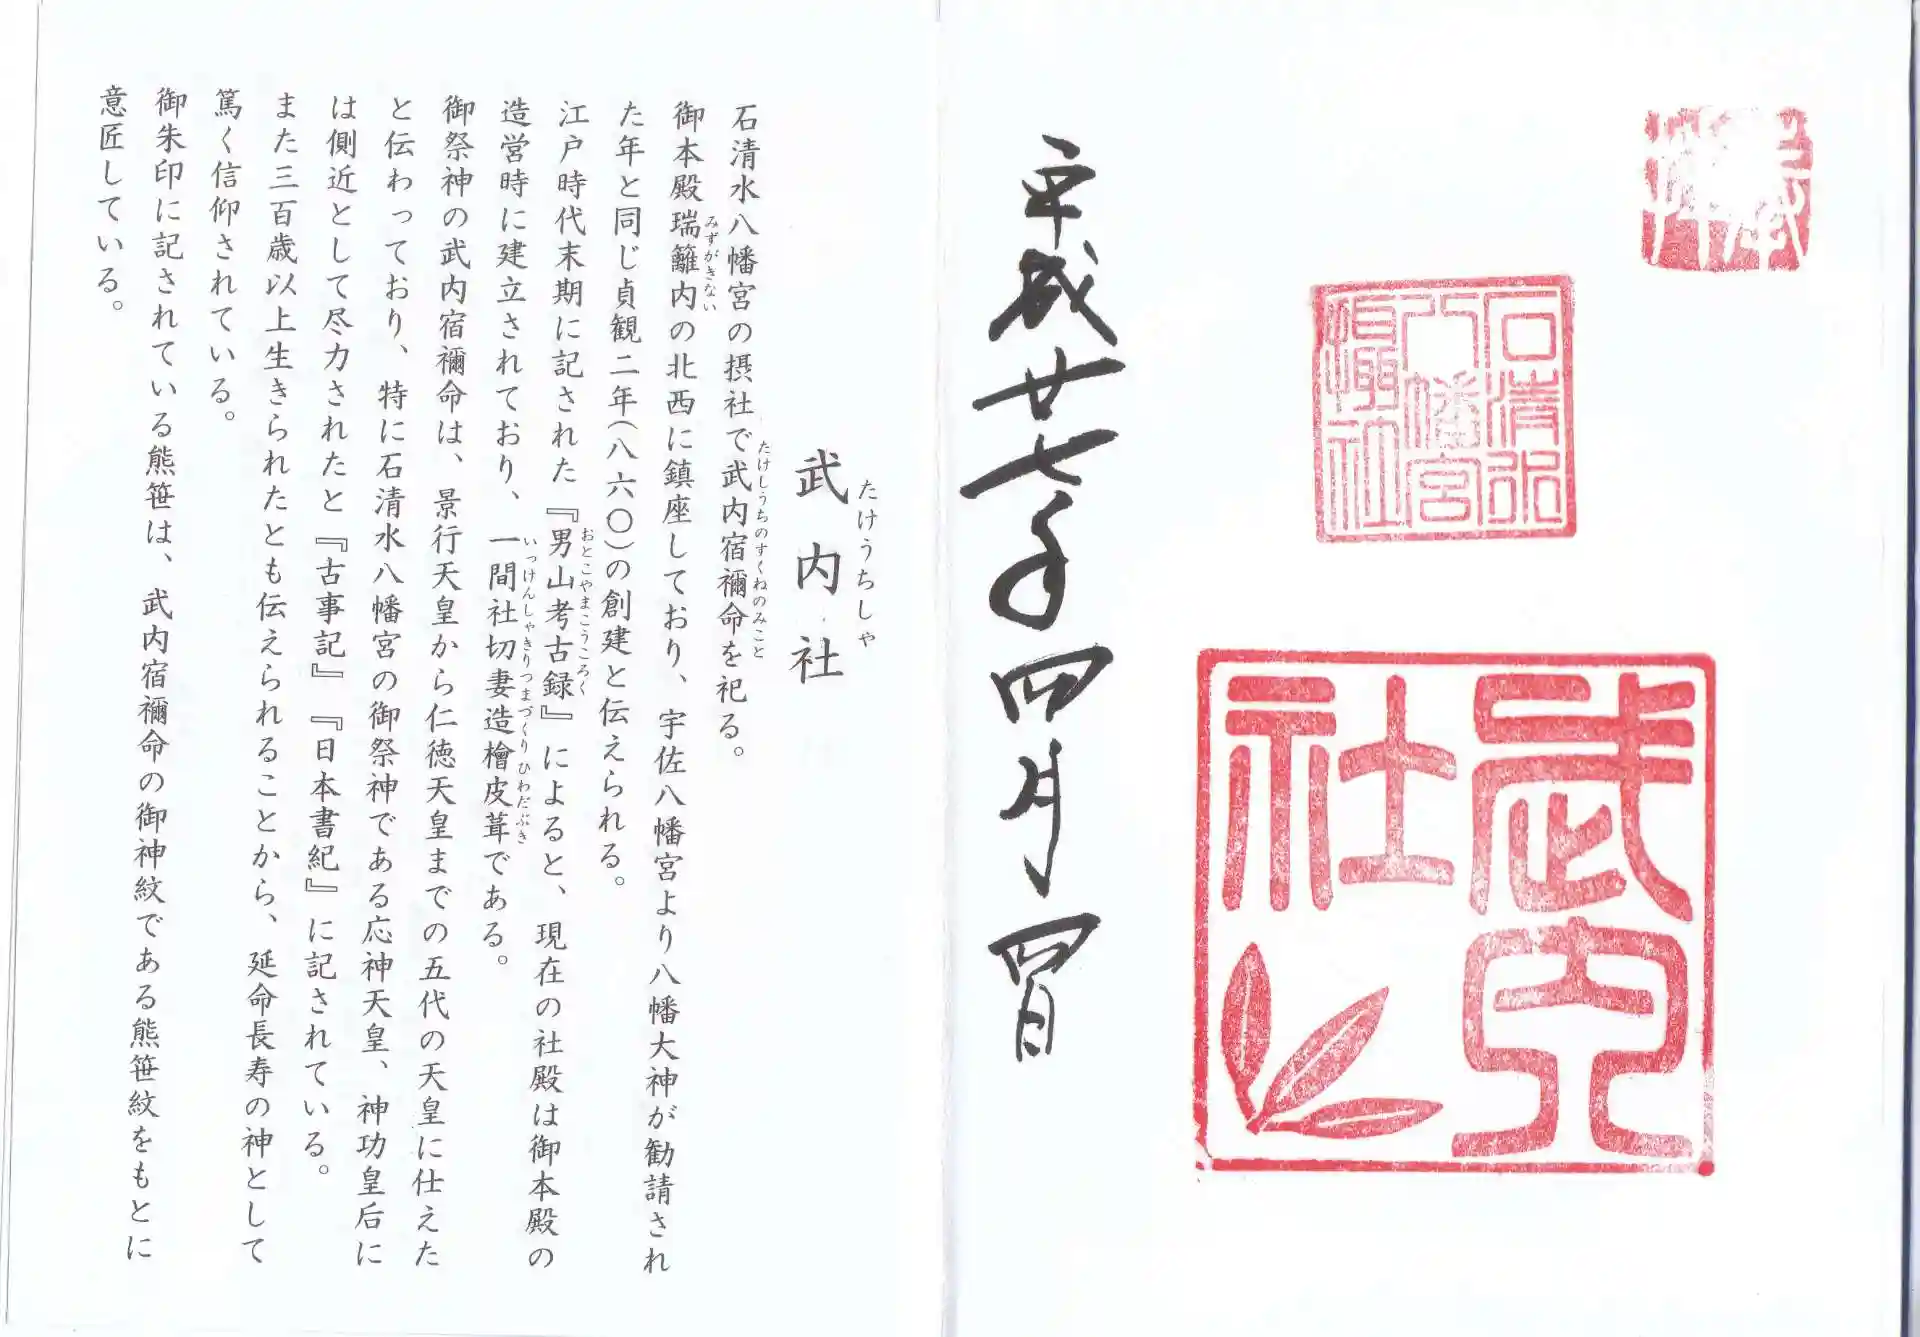 奉拝
石清水
八幡宮
摂社
武内
社
平成廿七年四月四日
武内社
たけうちしゃ
石清水八幡宮の摂社で武内宿禰命を祀る。
たけしうちのすくねのみこと
御本殿瑞籬内の北西に鎮座しており、宇佐八幡宮より八幡大神が勧請され
みずがきない
た年と同じ貞観二年(八六〇)の創建と伝えられる。
江戸時代末期に記された『男山考古録』によると、現在の社殿は御本殿の
おとこやまこうころく
造営時に建立されており、一間社切妻造檜皮葺である。
いっけんしゃきりつまづくりひわだぶき
御祭神の武内宿禰命は、景行天皇から仁徳天皇までの五代の天皇に仕えた
と伝わっており、特に石清水八幡宮の御祭神である応神天皇、神功皇后に
は側近として尽力されたと『古事記』『日本書紀』に記されている。
また三百歳以上生きられたとも伝えられることから、延命長寿の神として
篤く信仰されている。
御朱印に記されている熊笹は、武内宿禰命の御神紋である熊笹紋をもとに
意匠している。